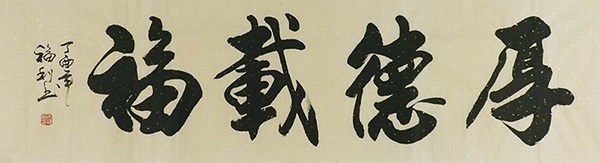 厚德載福
丁酉年
福利書